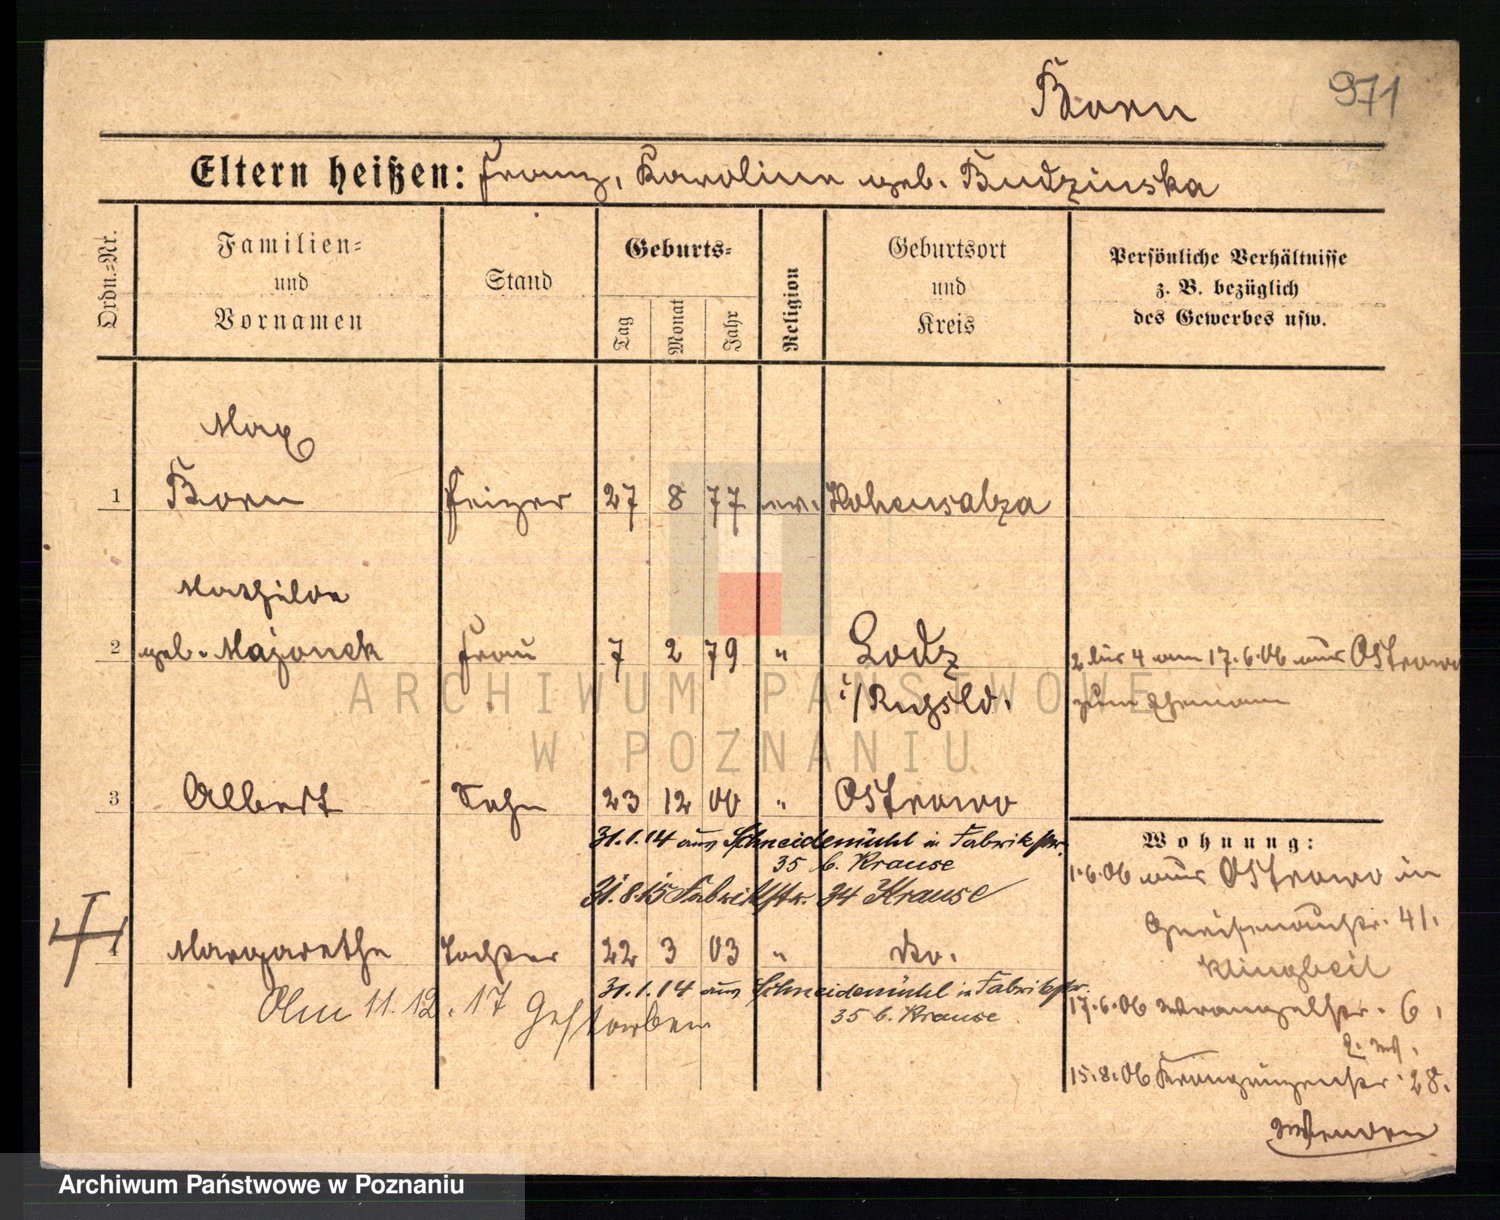 Born
971
Eltern heißen: Franz, Karoline geb. Budzinska
Ordn.=Nr.
Familien=
und
Vornamen
Stand
Geburts=
Tag
Monat
Jahr
Religion
Geburtsort
und
Kreis
Persönliche Verhältnisse
z. B. bezüglich
des Gewerbes usw.
Max
1 Born Heizer 27 8 77 ev. Hohensalza
Mathilde
2 geb. Majonek Frau 7 2 79 " Lodz
2 bis 4 am 17.6.06 aus Ostrowo
i/Russld.
zum Ehemann
3 Albert Sohn 23 12 00 " Ostrowo
31.1.14 aus Schneidemühl in Fabrikstr.
35 b. Krause
31.8.15 Fabrikstr. 34 Krause
4 Margarethe Tochter 22 3 03 " Do.
31.1.14 aus Schneidemühl in Fabrikstr.
35 b. Krause
Am 11.12.17 Gestorben
Wohnung:
1.6.06 aus Ostrowo in
Gneisenaustr. 41.
Klingbeil
17.6.06 Wrangelstr. 6,
15.8.06 Kronprinzenstr. 28.
ARCHIWUM PAŃSTWOWE
W POZNANIU
Archiwum Państwowe w Poznaniu